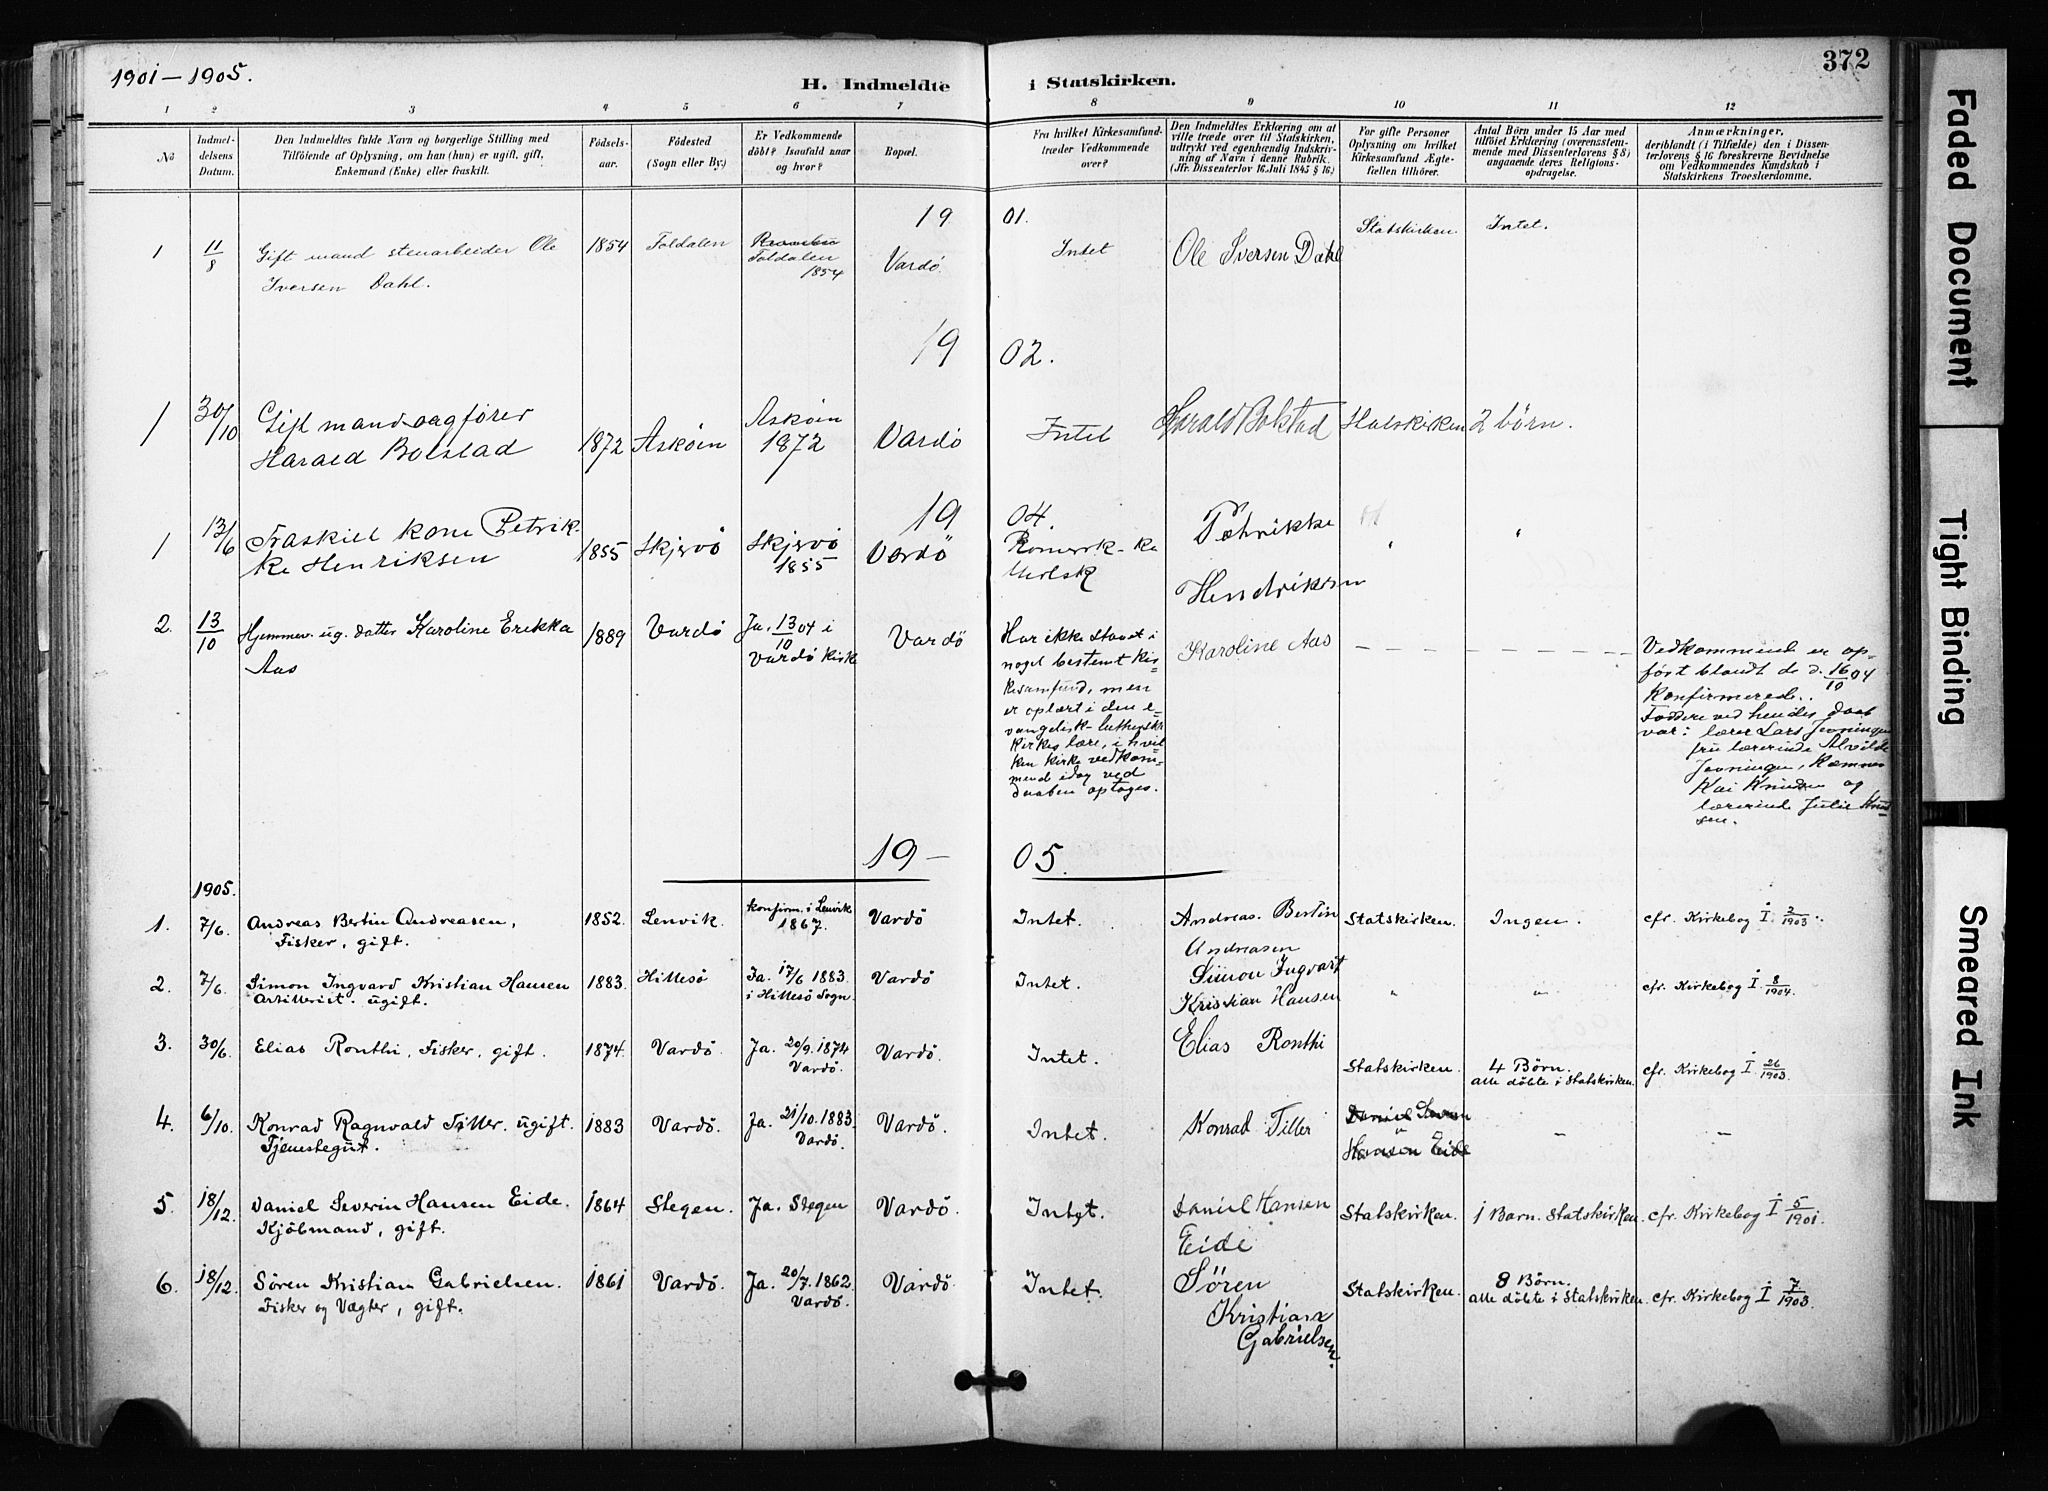 1901 – 1905.
H. Indmeldte i Statskirken.
372
1 2 3 4 5 6 7 8 9 10 11 12
No
Indmel-
delsens
Datum.
Den Indmeldtes fulde Navn og borgerlige Stilling med
Tilföiende af Oplysning, om han (hun) er ugift, gift,
Enkemand (Enke) eller fraskilt.
Födsels-
aar.
Födested
(Sogn eller By.)
Er Vedkommende
döbt? Isaafald naar
og hvor?
Bopæl.
Fra hvilket Kirkesamfund-
træder Vedkommende
over?
Den Indmeldtes Erklæring om at
ville træde over til Statskirken,
udtrykt ved egenhændig Indskriv-
ning af Navn i denne Rubrik.
(Jfr. Dissenterlov 16 Juli 1845 § 16.)
For gifte Personer
Oplysning om hvilket
Kirkesamfund Ægte-
fællen tilhörer.
Antal Börn under 15 Aar med
tilföiet Erklæring (overensstem-
mende med Dissenterlovens § 8)
angaaende deres Religions-
opdragelse.
Anmærkninger,
deriblandt (i Tilfælde) den i Dissen-
terlovens § 16 foreskrevne Bevidnelse
om Vedkommendes Kundskab i
Statskirkens Troeslærdomme.
19 01.
1 11/8 Gift mand stenarbeider Ole
Iversen Dahl.
1854 Foldalen
Foldalen
1854
Vardø Intet Ole Iversen Dahl Statskirken Intet.
19 02.
1 30/10 Gift mand sagfører
Harald Bolstad
1872 Askøen
Askøen
1872
Vardø Intet Harald Bolstad Statskirken 2 børn.
19 04.
1 13/6 Fraskilt kone Petrik-
ke Henriksen
1855 Skjervö
Skjervö
1855
Vardö
Romersk-ka
tholsk
Petrikke
Hendriksen
" "
2. 13/10 Hjemmev. ug. datter Karoline Erikka
Aas
1889 Vardö
Ja. 13/10 04 i
Vardö kirke
Vardö
Har ikke staaet i
noget bestemt kir-
kesamfund, men
er oplært i den e-
vangelisk-lutherske
kirkes lære, i hvil-
ken kirke vedkom-
mend idag ved
daaben optages.
Karoline Aas
Vedkommende er op-
ført blandt de d. 16/10 04
konfirmerede.
Faddere ved hendes daab
var: lærer Lars Jenningen
fru lærerinde Alvilde
Jenningen, Kæmner
Kai Knudsen og
lærerinde Julie Knud
sen.
19 – 05.
1905.
1. 7/6. Andreas Bertin Andreasen,
Fisker, gift.
1852. Lenvik.
Konfirm. i Lenvik
1867.
Vardö Intet.
Andreas Bertin
Andreasen
Statskirken. Ingen. cfr. Kirkebog I 2/1903.
2. 7/6. Simon Ingvard Kristian Hansen
Artillerist. ugift.
1883. Hillesö
Ja. 17/6 1883.
i Hillesö Sogn.
Vardö Intet.
Simon Ingvart
Kristian Hansen
" " cfr. Kirkebog I 8/1904.
3. 30/6. Elias Ronthi, Fisker, gift.
1874. Vardö.
Ja. 20/9. 1874
Vardö.
Vardö. Intet. Elias Ronthi
Statskirken.
4 Börn.
alle döbte i Statskirken.
cfr. Kirkebog I 26/1903.
4. 6/10. Konrad Ragnvald Tiller. ugift.
Tjenestegut.
1883 Vardö.
Ja. 21/10. 1883.
Vardö.
Vardö. Intet. Konrad Tiller
Daniel Severin
Hansen Eide
– –
5. 18/12. Daniel Severin Hansen Eide.
Kjöbmand, gift.
1864 Stegen. Ja. Stegen Vardö. Intet.
Daniel Hansen
Eide
Statskirken. 1 Barn. Statskirken. cfr. Kirkebog I 5/1901.
6. 18/12. Sören Kristian Gabrielsen.
Fisker og Vægter, gift.
1861 Vardö.
Ja. 20/7. 1862
Vardö.
Vardö. Intet.
Sören
Kristian
Gabrielsen.
Statskirken.
8 Börn.
alle döbte i Statskirken.
cfr. Kirkebog I 7/1903.
Faded Document
Tight Binding
Smeared Ink